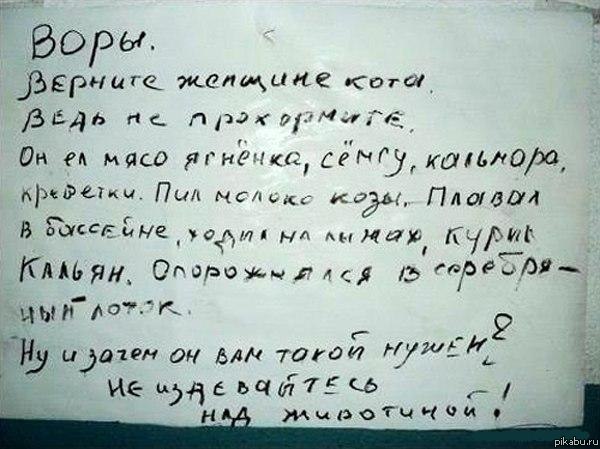 Воры.
Верните женщине кота.
Ведь не прокормите.
Он ел мясо ягнёнка, сёмгу, кальмара,
креветки. Пил молоко козы. Плавал
в бассейне, ходил на лыжах, курил
Кальян. Опорожнялся в серебря-
ный лоток.
Ну и зачем он вам такой нужен?
Не издевайтесь
над животиной!
pikabu.ru